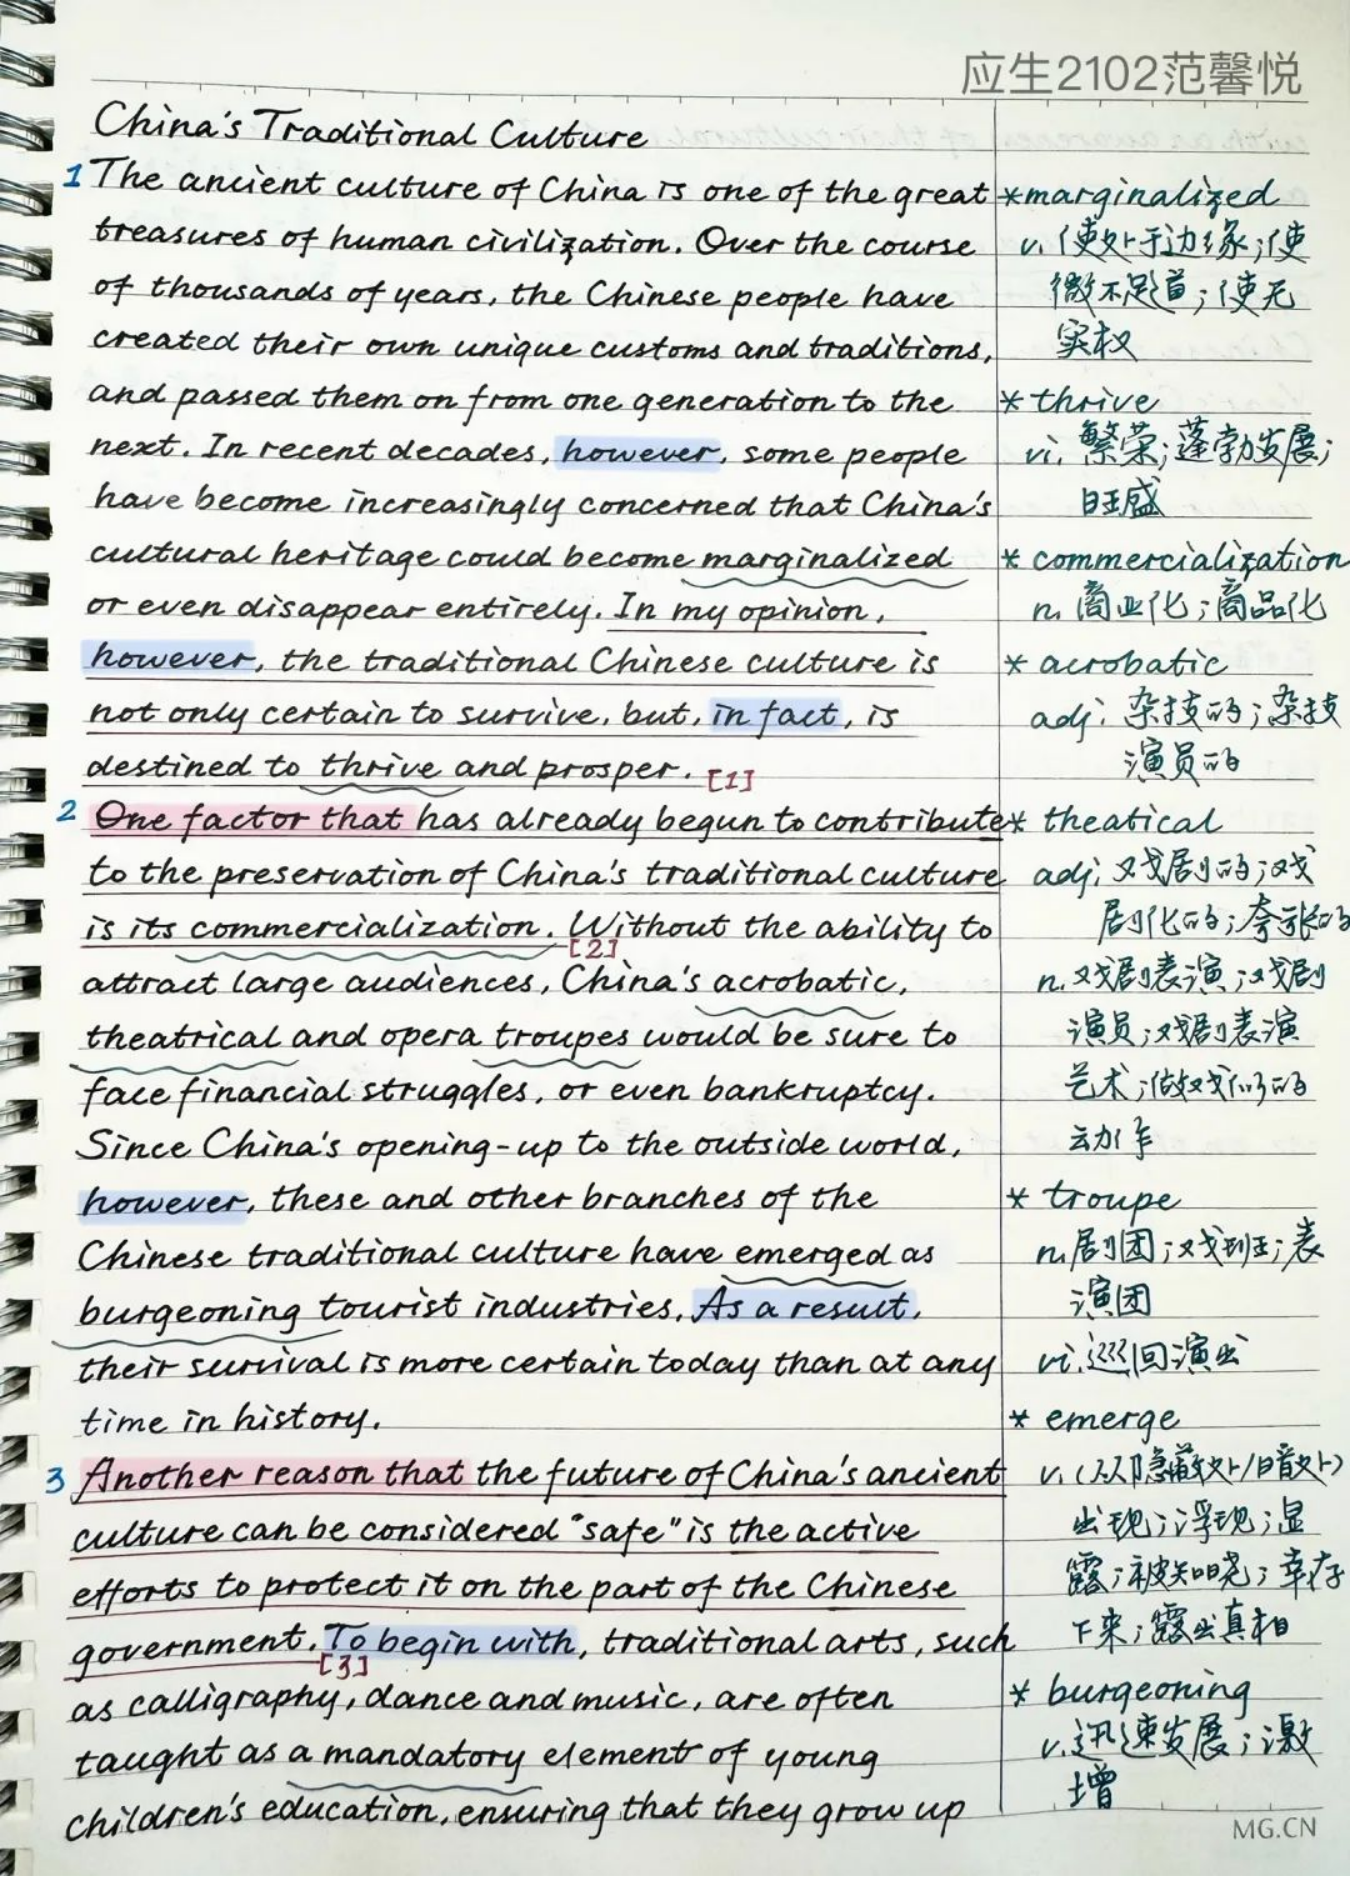 应生2102范馨悦
China's Traditional Culture
1 The ancient culture of China is one of the great
treasures of human civilization. Over the course
of thousands of years, the Chinese people have
created their own unique customs and traditions,
and passed them on from one generation to the
next. In recent decades, however, some people
have become increasingly concerned that China's
cultural heritage could become marginalized
or even disappear entirely. In my opinion,
however, the traditional Chinese culture is
not only certain to survive, but, in fact, is
destined to thrive and prosper. [1]
2 One factor that has already begun to contribute
to the preservation of China's traditional culture
is its commercialization. Without the ability to
[2]
attract large audiences, China's acrobatic,
theatrical and opera troupes would be sure to
face financial struggles, or even bankruptcy.
Since China's opening-up to the outside world,
however, these and other branches of the
Chinese traditional culture have emerged as
burgeoning tourist industries. As a result,
their survival is more certain today than at any
time in history.
3 Another reason that the future of China's ancient
culture can be considered "safe" is the active
efforts to protect it on the part of the Chinese
government. To begin with, traditional arts, such
[3]
as calligraphy, dance and music, are often
taught as a mandatory element of young
children's education, ensuring that they grow up
*marginalized
v. 使处于边缘;使
微不足道;使无
实权
* thrive
vi. 繁荣;蓬勃发展;
旺盛
* commercialization
n. 商业化;商品化
* acrobatic
adj. 杂技的;杂技
演员的
* theatical
adj. 戏剧的;戏
剧化的;夸张的
n. 戏剧表演;戏剧
演员;戏剧表演
艺术;做戏似的
动作
* troupe
n. 剧团;戏班;表
演团
vi. 巡回演出
* emerge
v. (从隐蔽处/暗处)
出现;浮现;显
露;被知晓;幸存
下来;露出真相
* burgeoning
v. 迅速发展;激
增
MG.CN